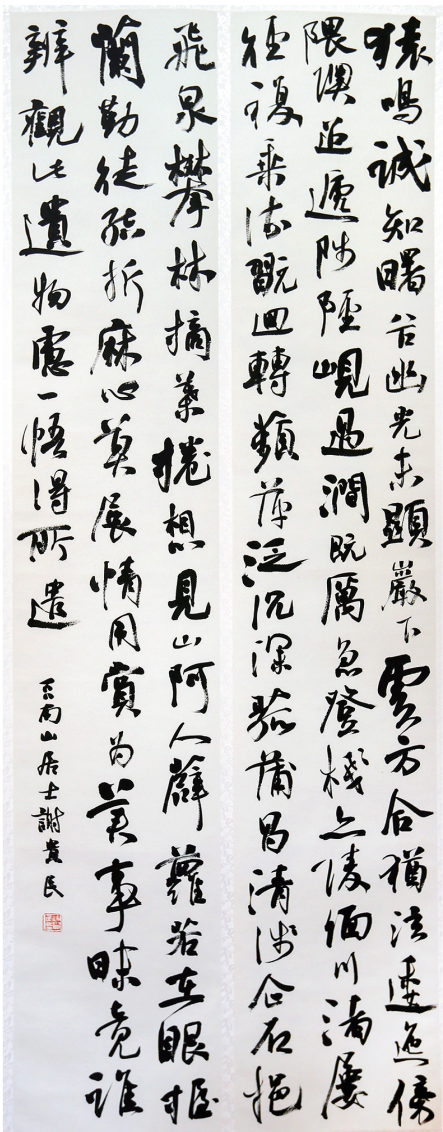 猿鳴誠知曙谷幽光未顯巖下雲方合猶泫逶迤傍
隈隩迢遞陟陘峴過澗既厲急登棧亦陵緬川渚屢
徑復乘流翫迴轉蘋萍泛沉深菰蒲冒清淺企石挹
飛泉攀林摘葉捲想見山阿人薜蘿若在眼握
蘭勤徒結折麻心莫展情用賞為美事昧竟誰
辨觀此遺物慮一悟得所遣
南山居士謝貴民